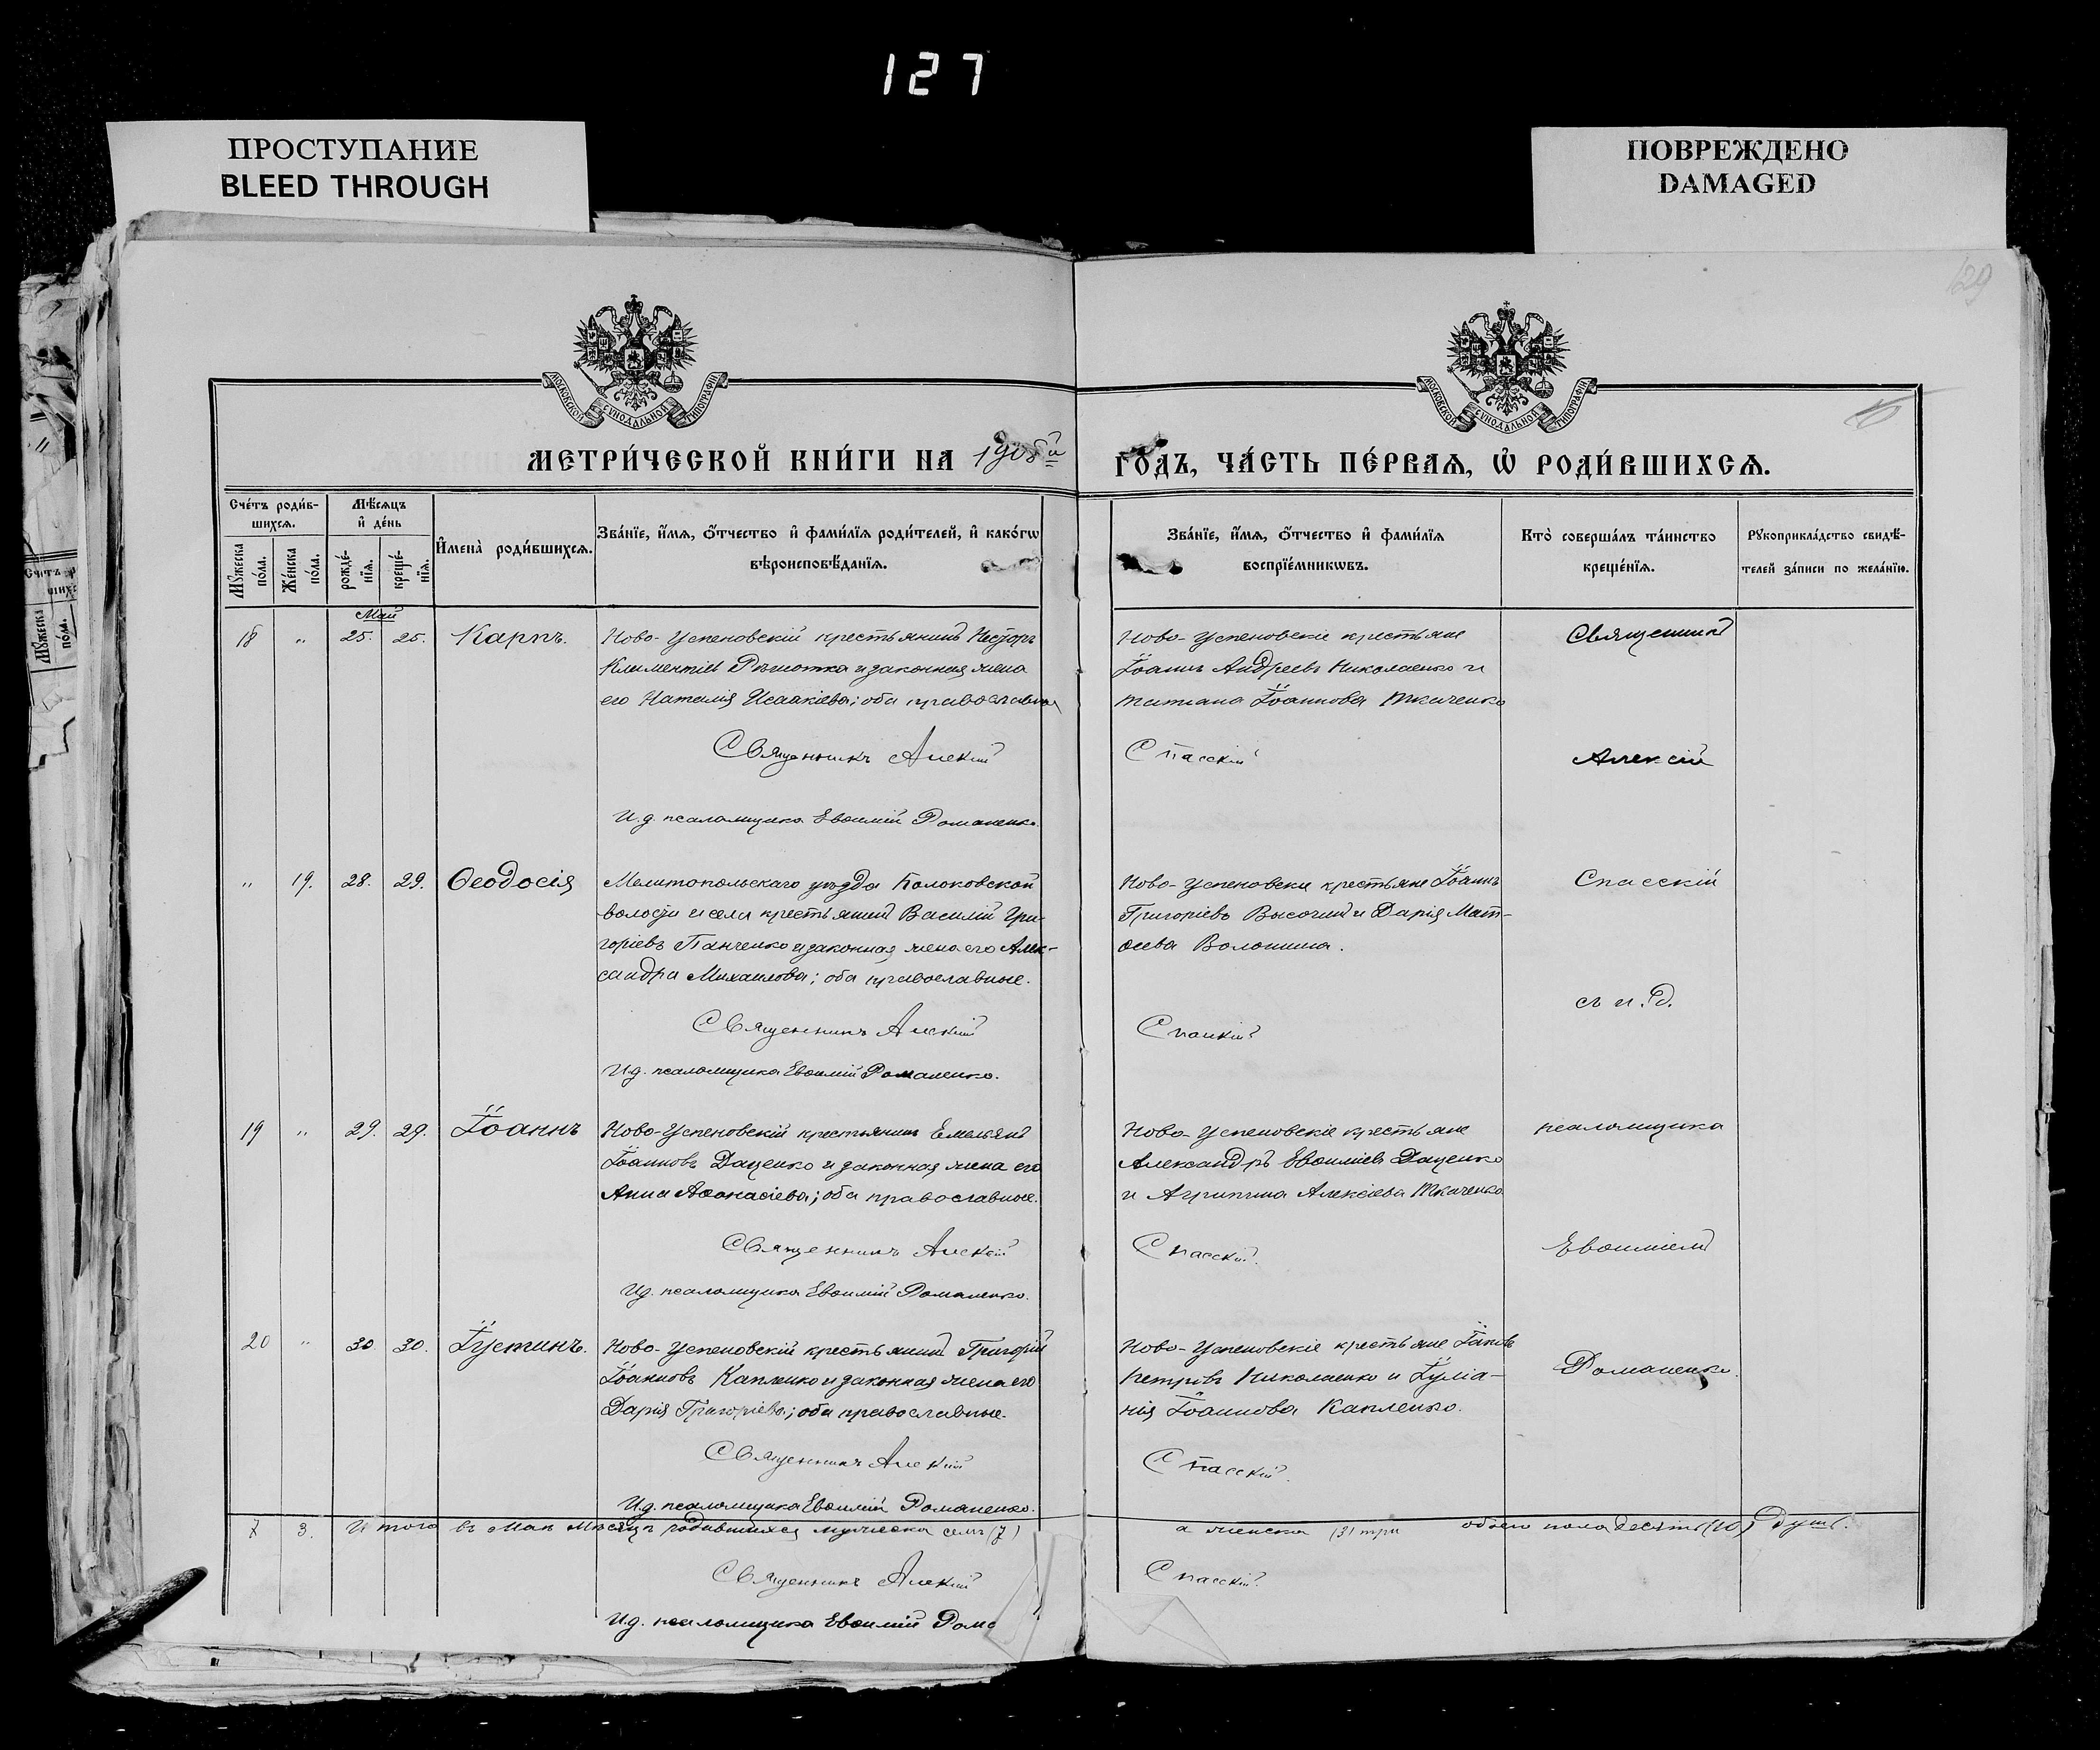 127
ПРОСТУПАНИЕ
BLEED THROUGH
ПОВРЕЖДЕНО
DAMAGED
129
МОСКОВСКОЙ СѴНОДАЛЬНОЙ ТИПОГРАФІИ
МОСКОВСКОЙ СѴНОДАЛЬНОЙ ТИПОГРАФІИ
МЕТРИ́ЧЕСКОЙ КНИ́ГИ НА 1908й
ГО́ДЪ, ЧА́СТЬ ПЕ́РВАѦ, Ѡ҆ РОДИ́ВШИХСѦ.
Сче́тъ роди́в-
шихсѧ.
Мꙋ́жеска по́ла.
Же́нска по́ла.
Мѣ́сѧцъ
и҆ де́нь
рожде́-
нїѧ.
креще́-
нїѧ.
И҆мена̀ роди́вшихсѧ.
Зва́нїе, и҆́мѧ, ѻ҆́тчество и҆ фами́лїѧ роди́телей, и҆ како́гѡ
вѣроисповѣ́данїѧ.
Зва́нїе, и҆́мѧ, ѻ҆́тчество и҆ фами́лїѧ
воспрїе́мникѡвъ.
Кто̀ соверша́лъ та́инство
креще́нїѧ.
Рꙋкоприкла́дство свидѣ́-
телей за́писи по жела́нїю.
Май
18 " 25. 25. Карпъ.
Ново-Успеновскій крестьянинъ Несторъ
Климентіевъ и законная жена
его Наталія Исаакіева; оба православные
Священникъ Алексій
И.д. псаломщика Евѳимій Романенко.
Ново-Успеновскіе крестьяне
Іоаннъ Андреевъ Николаенко и
Татіана Іоаннова Ткаченко
Спасскій
Священникъ
Алексій
" 19. 28. 29. Ѳеодосія
Мелитопольскаго уѣзда
волости и села крестьянинъ Василій Гри-
горіевъ Панченко и законная жена его Алек-
сандра Михаилова; оба православные.
Священникъ Алексій
И.д. псаломщика Евѳимій Романенко.
Ново-Успеновскіе крестьяне Іоаннъ
Григоріевъ Высочинъ и Дарія Мат-
ѳеева Волошина.
Спасскій
Спасскій
съ и.д.
19 " 29. 29. Іоаннъ
Ново-Успеновскій крестьянинъ Емельянъ
Іоанновъ Даценко и законная жена его
Анна Аѳанасіева; оба православные.
Священникъ Алексій
И.д. псаломщика Евѳимій Романенко.
Ново-Успеновскіе крестьяне
Александръ Евѳиміевъ Даценко
и Агрипина Алексіева Ткаченко
Спасскій.
псаломщика
Евѳиміемъ
20 " 30 30. Іустинъ.
Ново-Успеновскій крестьянинъ Григорій
Іоанновъ Капленко и законная жена его
Дарія Григоріева; оба православные.
Священникъ Алексій
И.д. псаломщика Евѳимій Романенко.
Ново-Успеновскіе крестьяне Іаковъ
Петровъ Николаенко и Іуліа-
нія Іоаннова Капленко.
Спасскій.
Романенко.
7 3. Итого въ Маѣ мѣсяцѣ родившихся мужеска семь (7)
а женска (3) три обоего пола десять (10) душъ.
Священникъ Алексій
Спасскій.
И.д. псаломщика Евѳимій Рома